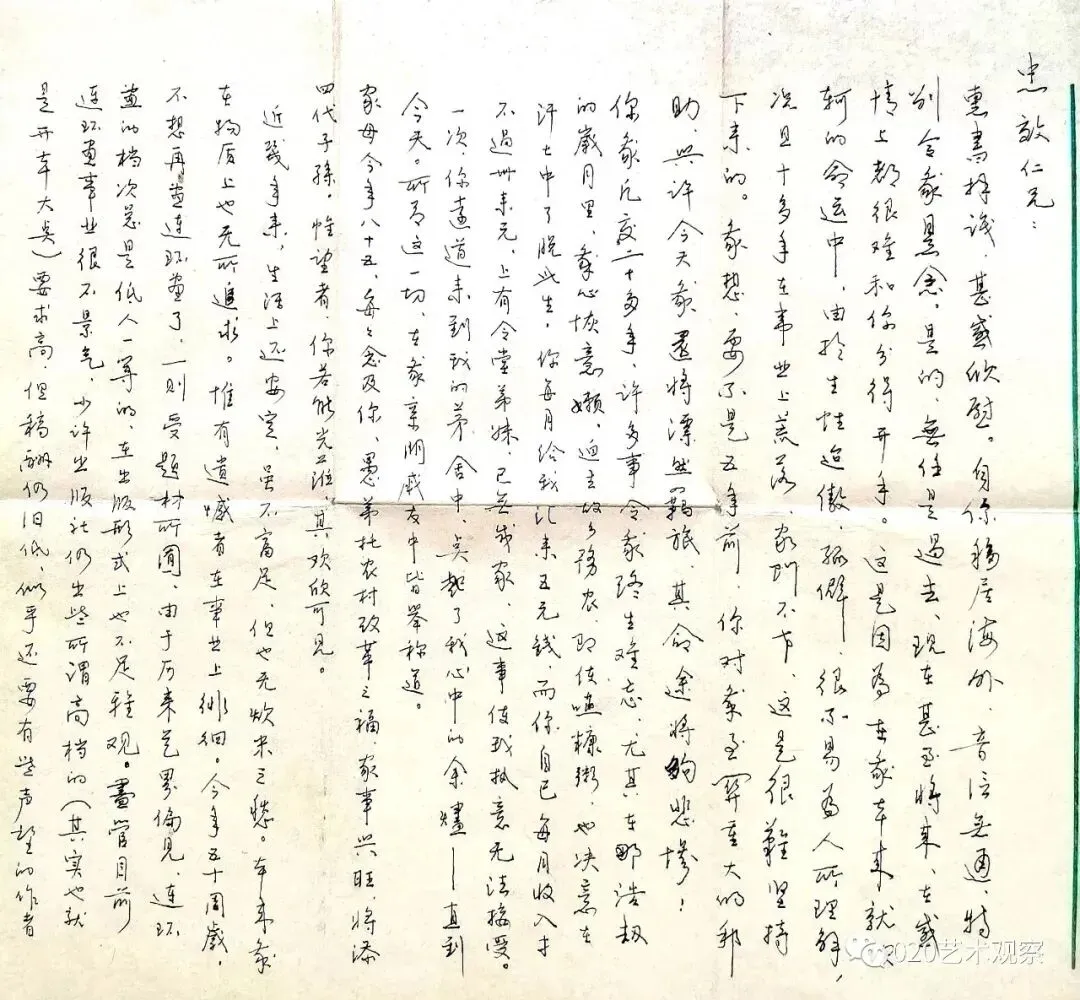 忠敏仁兄：
惠书拜读，甚感欣慰。自你移居海外，音信无通，特
别令我悬念。是的，无任是过去、现在甚至将来，在感
情上都很难和你分得开手。这是因为在我本来就
轲的命运中，由於生性迨傲，孤僻，很不易为人所理解，
况且十多年在事业上荒落，家训不节，这是很难坚持
下来的。我想，要不是五年前，你对我至关重大的邦
助，兴许今天我还将漂然羁旅，其命途将够悲惨！
你我凡交二十多年，许多事令我终生难忘，尤其在那浩劫
的岁月里，我心恢意嬾，迫去故乡务农，即使喳糠粥，也决意在
汗土中了脱此生，你每月给我汇来五元钱，而你自己每月收入才
不过卅来元，上有令堂弟妹，已无成家，这事使我执意无法接受。
一次，你远道来到我的茅舍中，点起了我心中的余烬——直到
今天。所有这一切，在我亲朋戚友中皆举称道。
家母今年八十五，每每念及你，愚弟托农村改革之福，家事兴旺，将添
四代子孫。惟望者，你若能光蒞，其欢欣可见。
近几年来，生活上还安定，虽不富足，但也无炊米之愁。本来我
在物质上也无所追求。惟有遗憾者在事业上徘徊。今年五十周岁，
不想再画连环画了，一则受题材所囿，由于历来芒界偏见，连环
画的档次总是低人一等的，在出版形式上也不足雅观。尽管目前
连环画事业很不景气，少许出版社仍出些所谓高档的（其实也就
是开本大矣）要求高，但稿酬仍旧低，似乎还要有些声望的作者
2020艺术观察